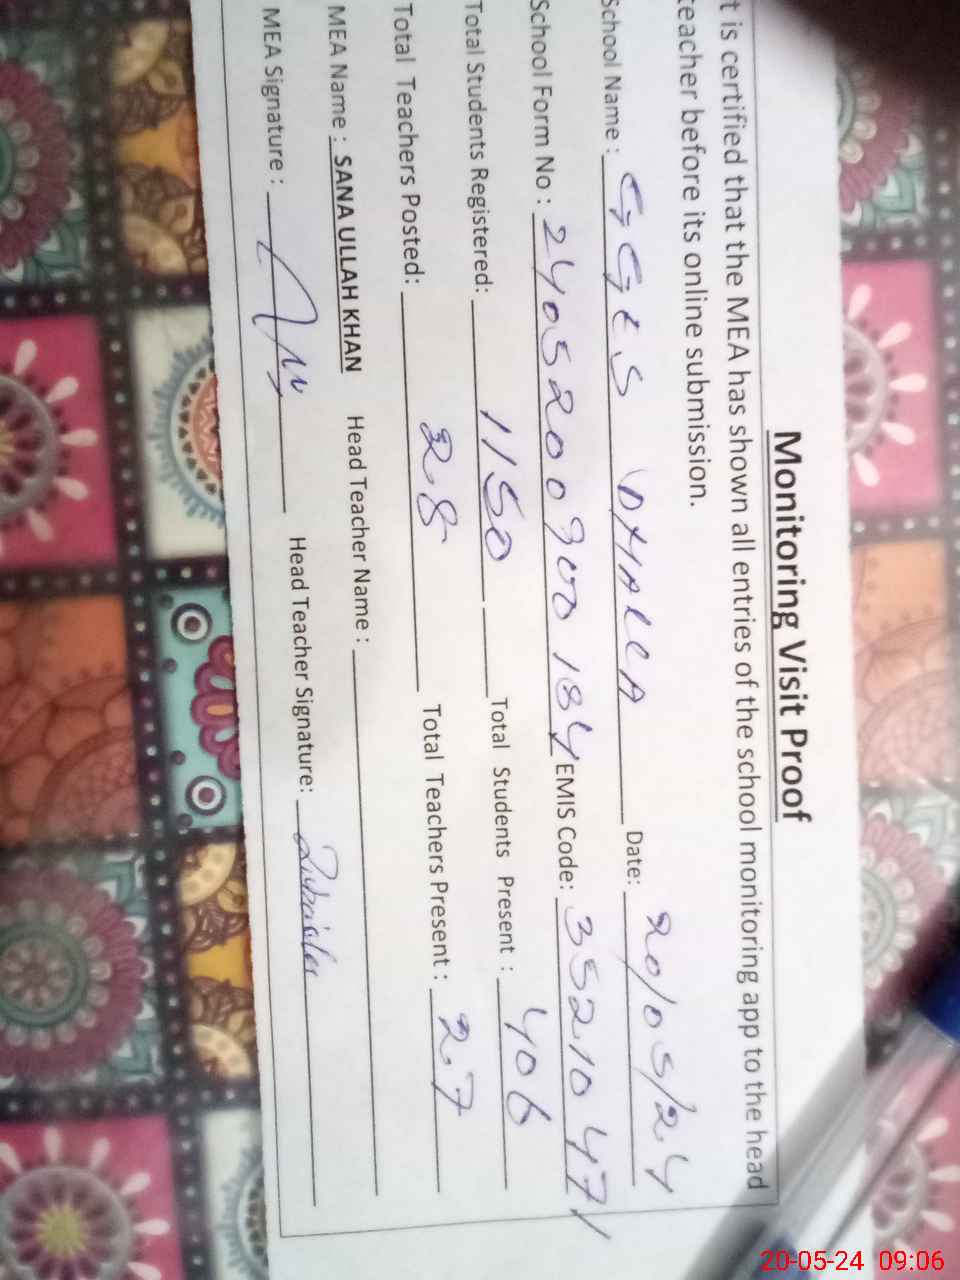 Monitoring Visit Proof
t is certified that the MEA has shown all entries of the school monitoring app to the head
teacher before its online submission.
School Name : GGES Date: 20/05/24
School Form No : 2405200900184 EMIS Code: 35210471
Total Students Registered: 1150 Total Students Present : 406
Total Teachers Posted: 28 Total Teachers Present : 27
MEA Name : SANA ULLAH KHAN Head Teacher Name :
MEA Signature : Head Teacher Signature:
20-05-24 09:06